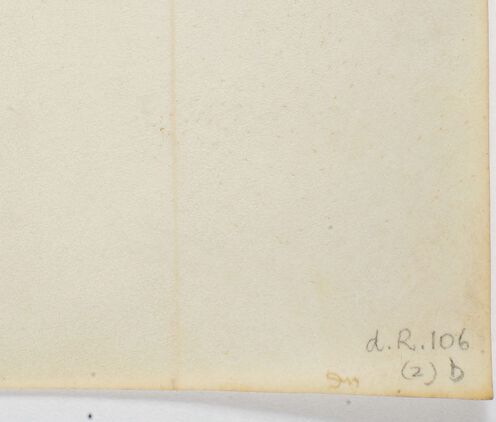 d.R.106
(2) b